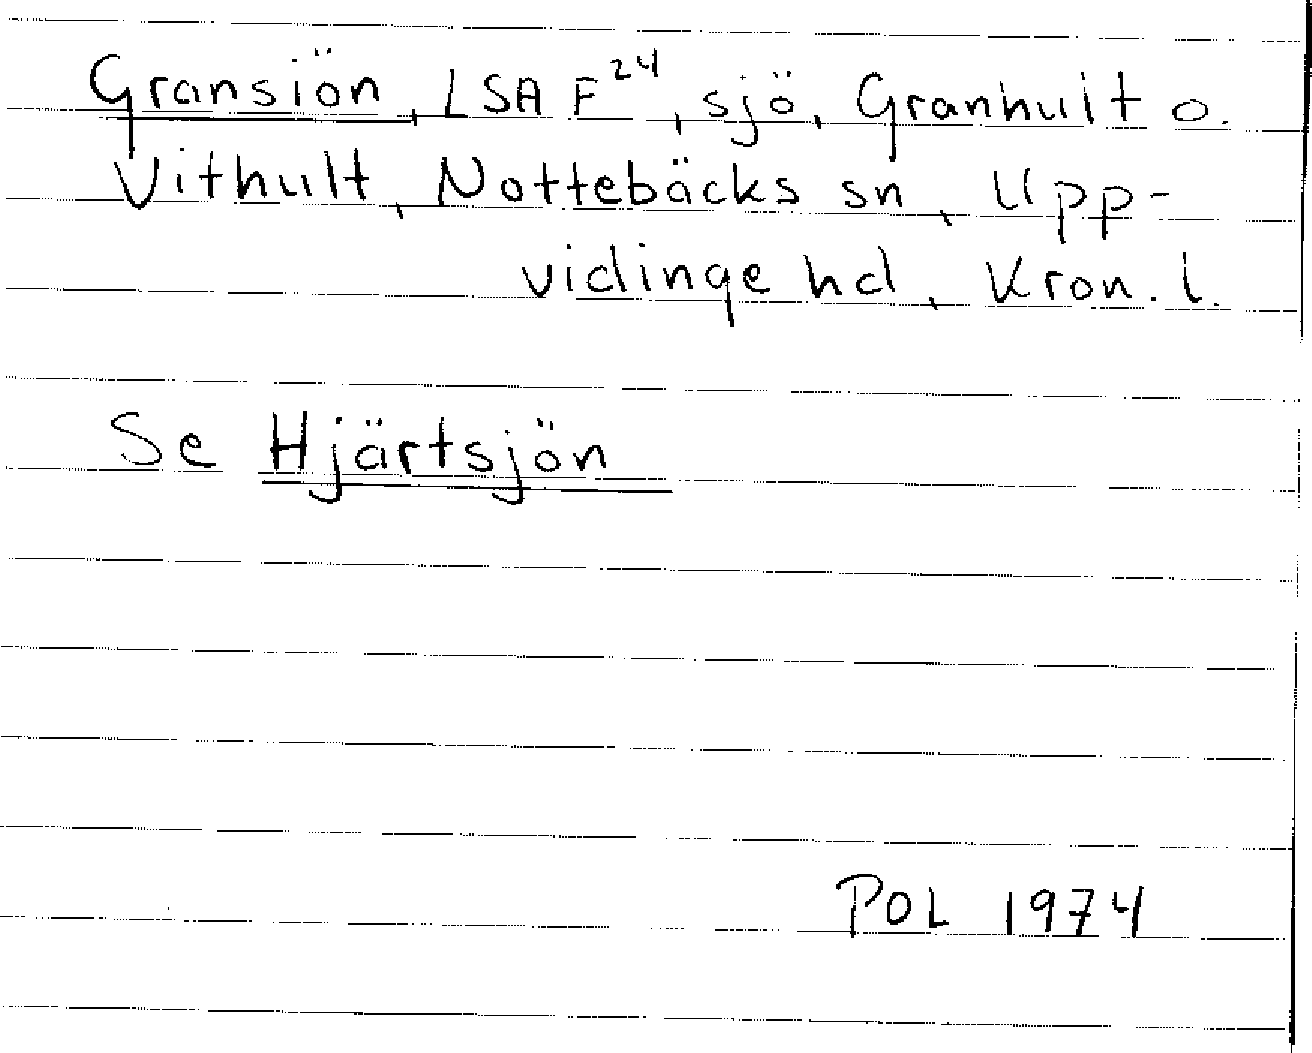 Gransiön, LSA F²⁴, sjö, Granhult o.
Vithult, Nottebäcks sn, Upp-
vidinge hd, Kron. l.
Se Hjärtsjön
POL 1974